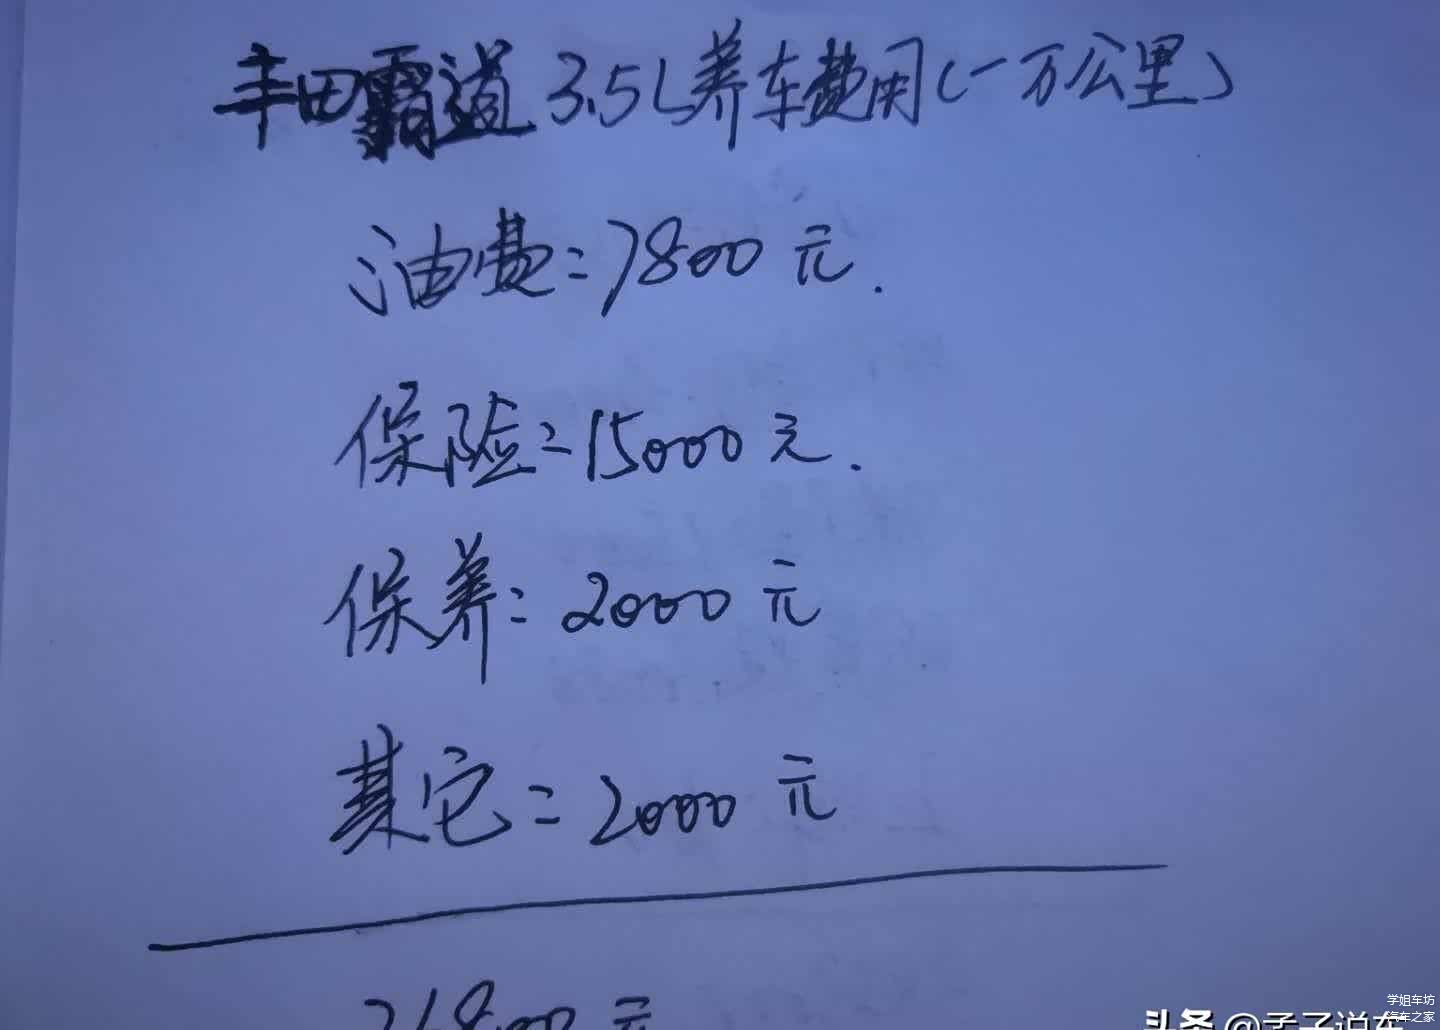 丰田霸道3.5L养车费用(一万公里)
油费=7800元.
保险=15000元.
保养=2000元
其它=2000元
26800元
学姐车坊
汽车之家
头条@孟子说车